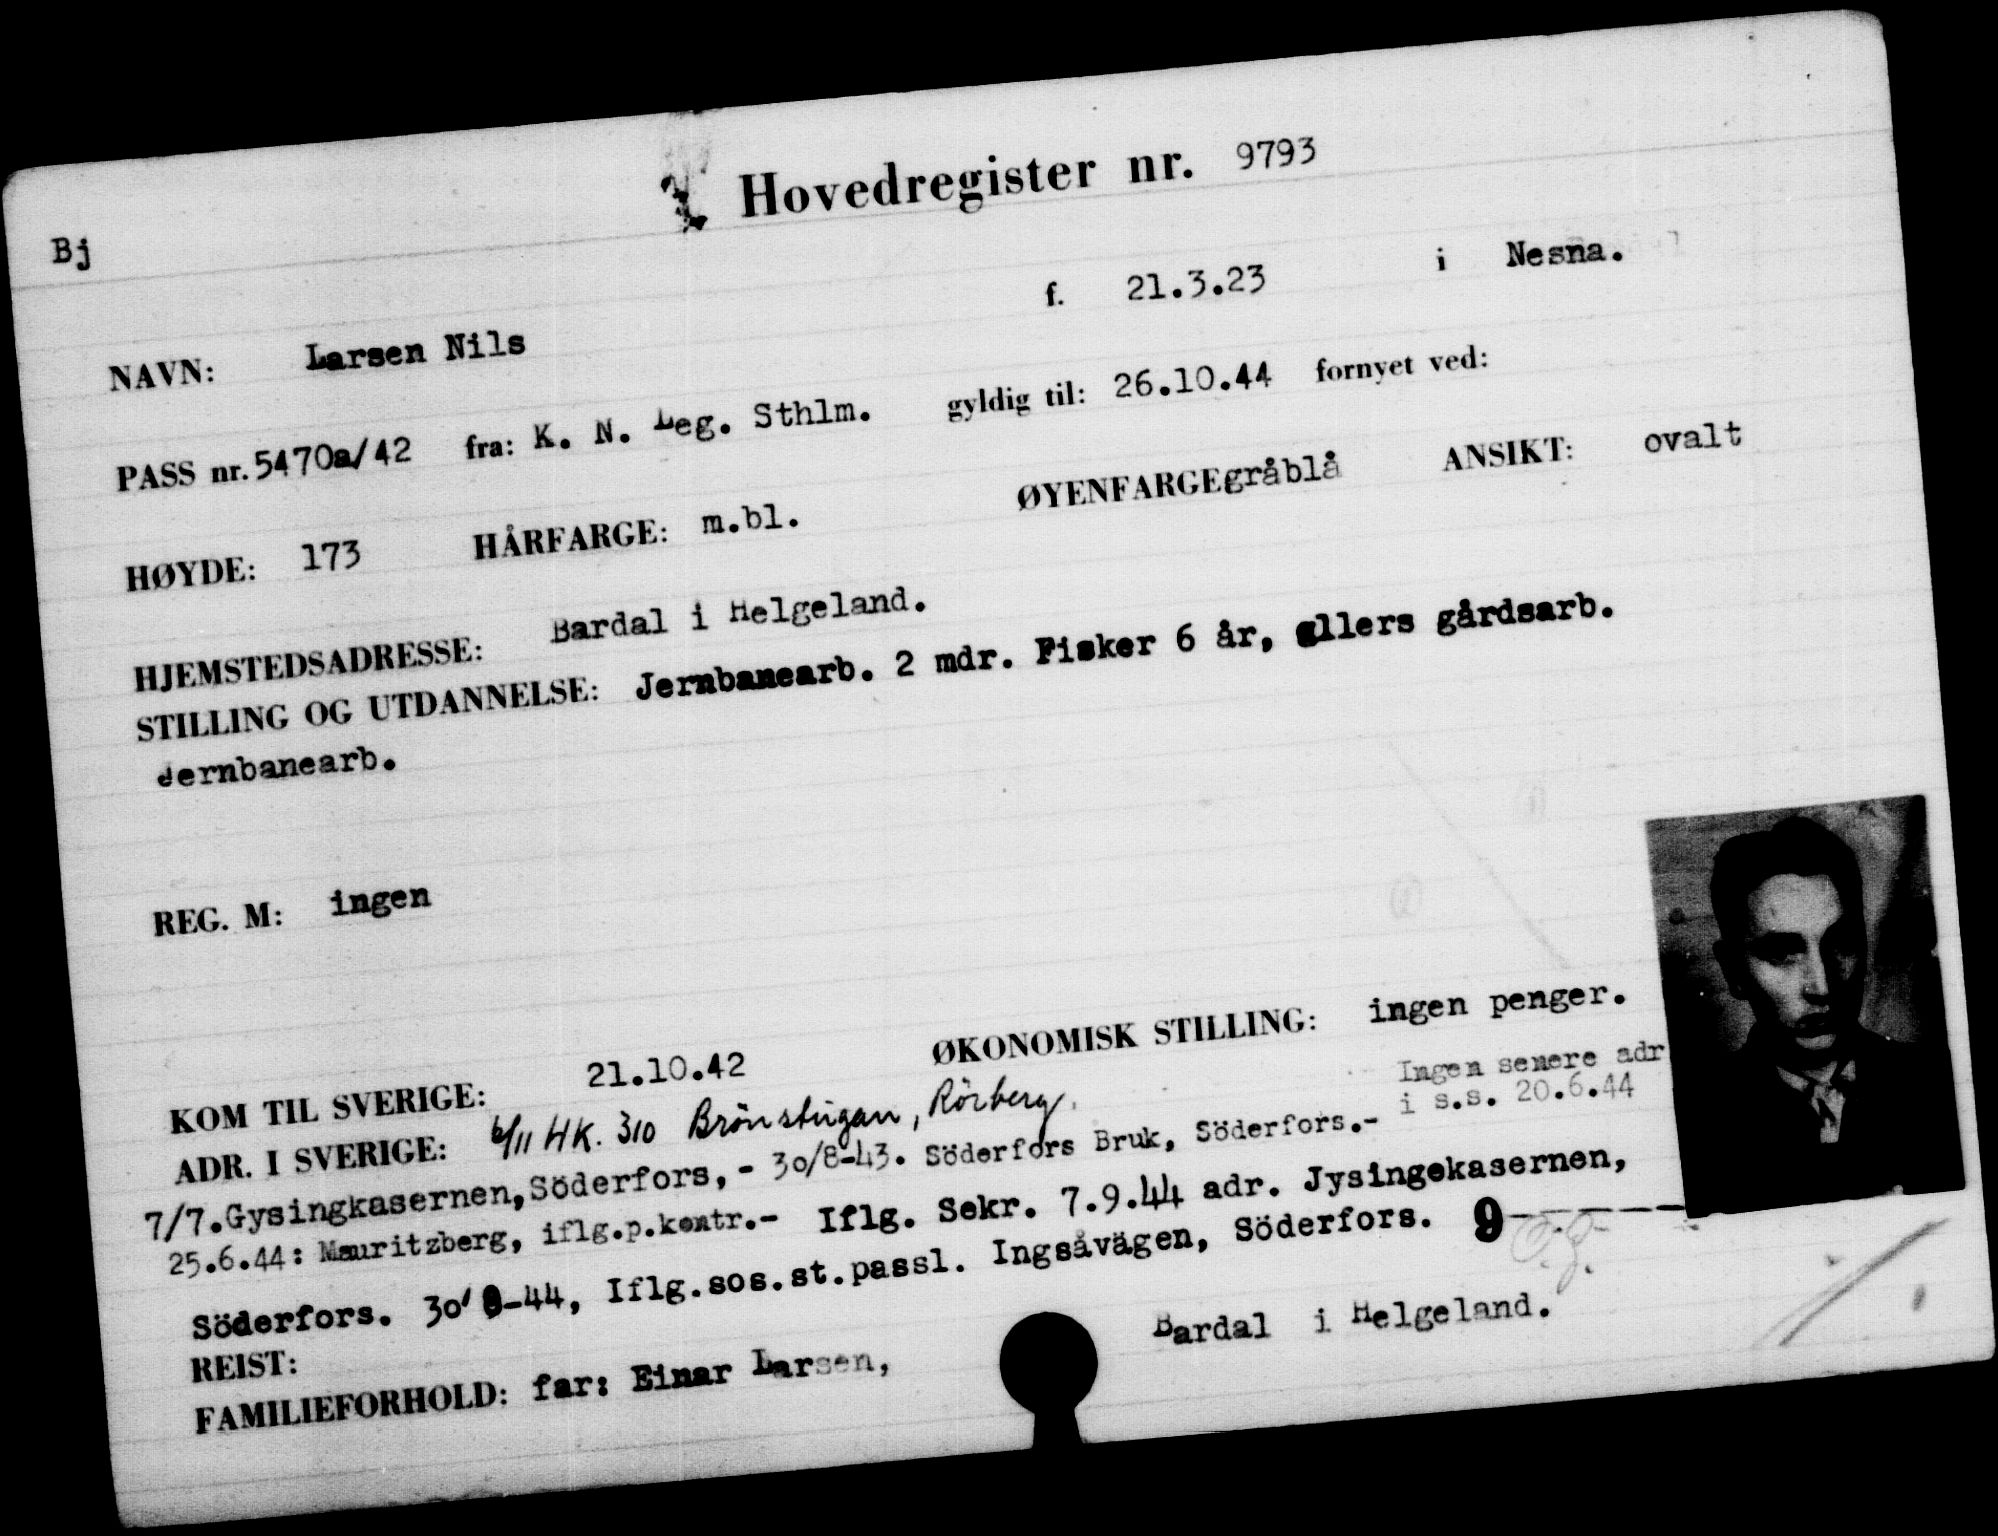 Hovedregister nr. 9793
Bj
NAVN: Larsen Nils f. 21.3.23 i Nesna.
PASS nr. 5470a/42 fra: K. N. Leg. Sthlm. gyldig til: 26.10.44 fornyet ved:
HØYDE: 173 HÅRFARGE: m.bl. ØYENFARGE gråblå ANSIKT: ovalt
HJEMSTEDSADRESSE: Bardal i Helgeland.
STILLING OG UTDANNELSE: Jernbanearb. 2 mdr. Fisker 6 år, ellers gårdsarb.
Jernbanearb.
REG. M: ingen
KOM TIL SVERIGE: 21.10.42 ØKONOMISK STILLING: ingen penger.
ADR. I SVERIGE: 6/11 HK. 310 Brönstugan, Rörberg. Ingen senere adr
i s.s. 20.6.44
7/7.Gysingkasernen,Söderfors,- 30/8-43. Söderfors Bruk, Söderfors.-
25.6.44: Mauritzberg, iflg.p.kontr.- Iflg. Sekr. 7.9.44 adr. Jysingekasernen,
Söderfors. 30/9-44, Iflg.sos.st.passl. Ingsåvägen, Söderfors. 9-------
REIST:
FAMILIEFORHOLD: far: Einar Larsen, Bardal i Helgeland.